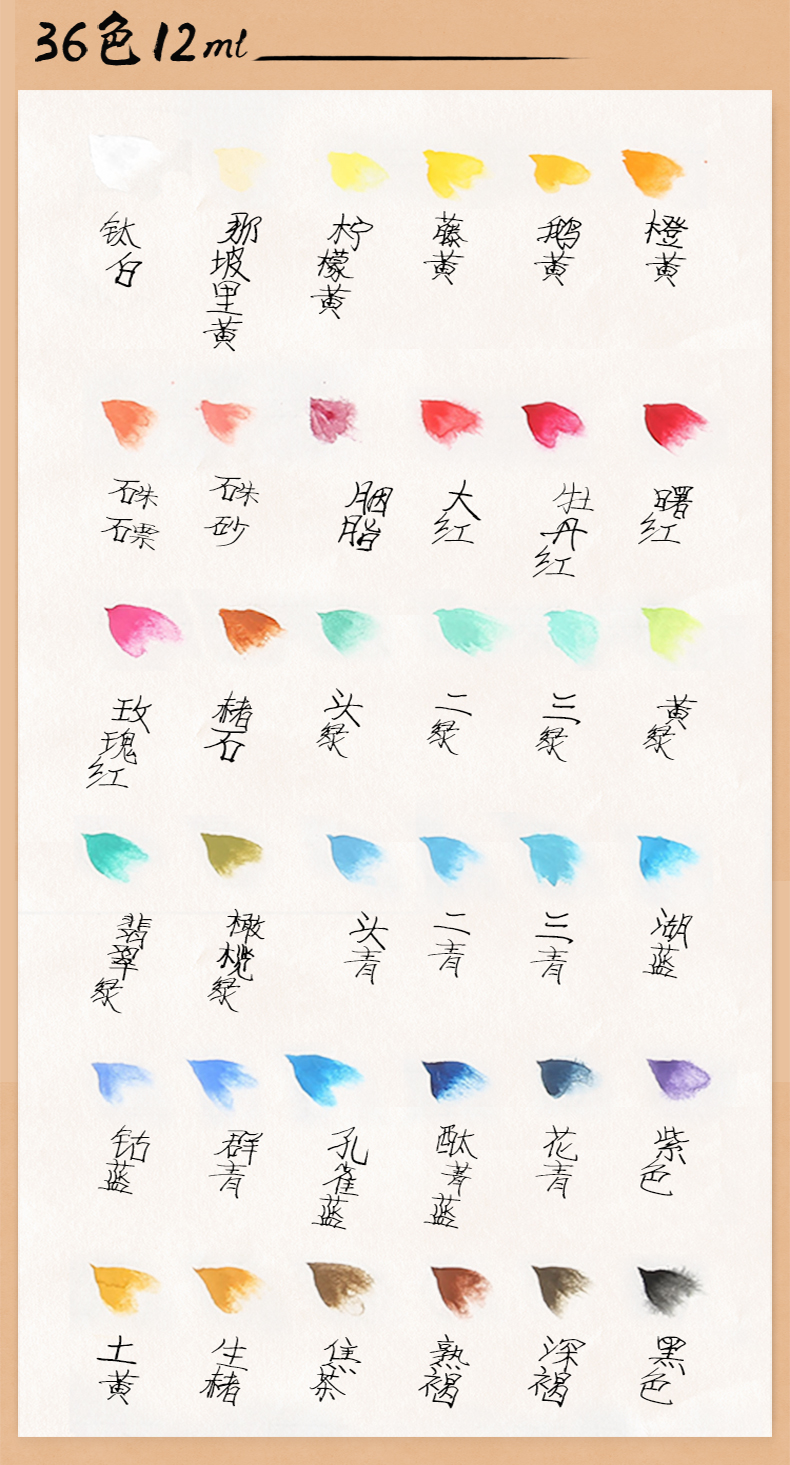 36色12ml
钛白
那坡里黄
柠檬黄
藤黄
鹅黄
橙黄
硃石票
硃砂
胭脂
大红
牡丹红
曙红
玫瑰红
赭石
头绿
二绿
三绿
黄绿
翡翠绿
橄榄绿
头青
二青
三青
湖蓝
钴蓝
群青
孔雀蓝
酞菁蓝
花青
紫色
土黄
生赭
焦茶
熟褐
深褐
黑色